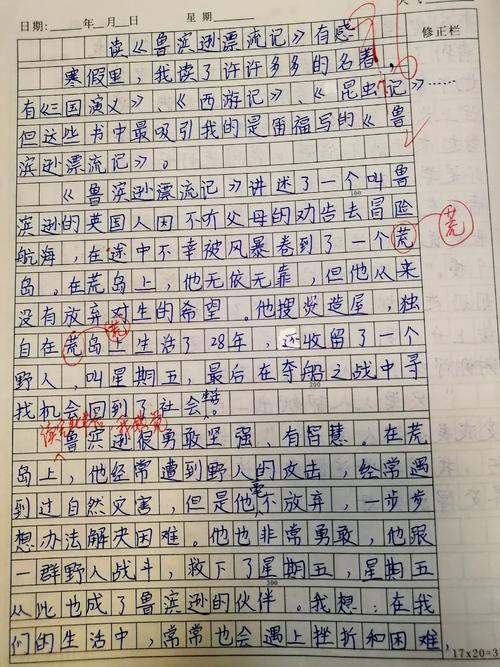 日期：____年__月__日 星期____
修正栏
读《鲁滨逊漂流记》有感
寒假里，我读了许许多多的名著，
有《三国演义》、《西游记》、《昆虫记》……
但这些书中最吸引我的是笛福写的《鲁
滨逊漂流记》。
《鲁滨逊漂流记》讲述了一个叫鲁
100
滨逊的英国人因不听父母的劝告去冒险
航海，在途中不幸被风暴卷到了一个荒
荒
岛。在荒岛上，他无依无靠，但他从来
没有放弃对生的希望。他搜炭造屋，独
荒
自在荒岛上生活了28年，还收留了一个
野人，叫星期五，最后在夺船之战中寻
200
找机会回到了社会。
鲁滨逊很勇敢坚强、有智慧。在荒
岛上，他经常遭到野人的攻击，经常遇
到过自然灾害，但是他毫不放弃，一步步
想办法解决困难。他也非常勇敢，他跟
一群野人战斗，救下了星期五，星期五
300
从此也成了鲁滨逊的伙伴。我想：在我
们的生活中，常常也会遇上挫折和困难，
17×20=3